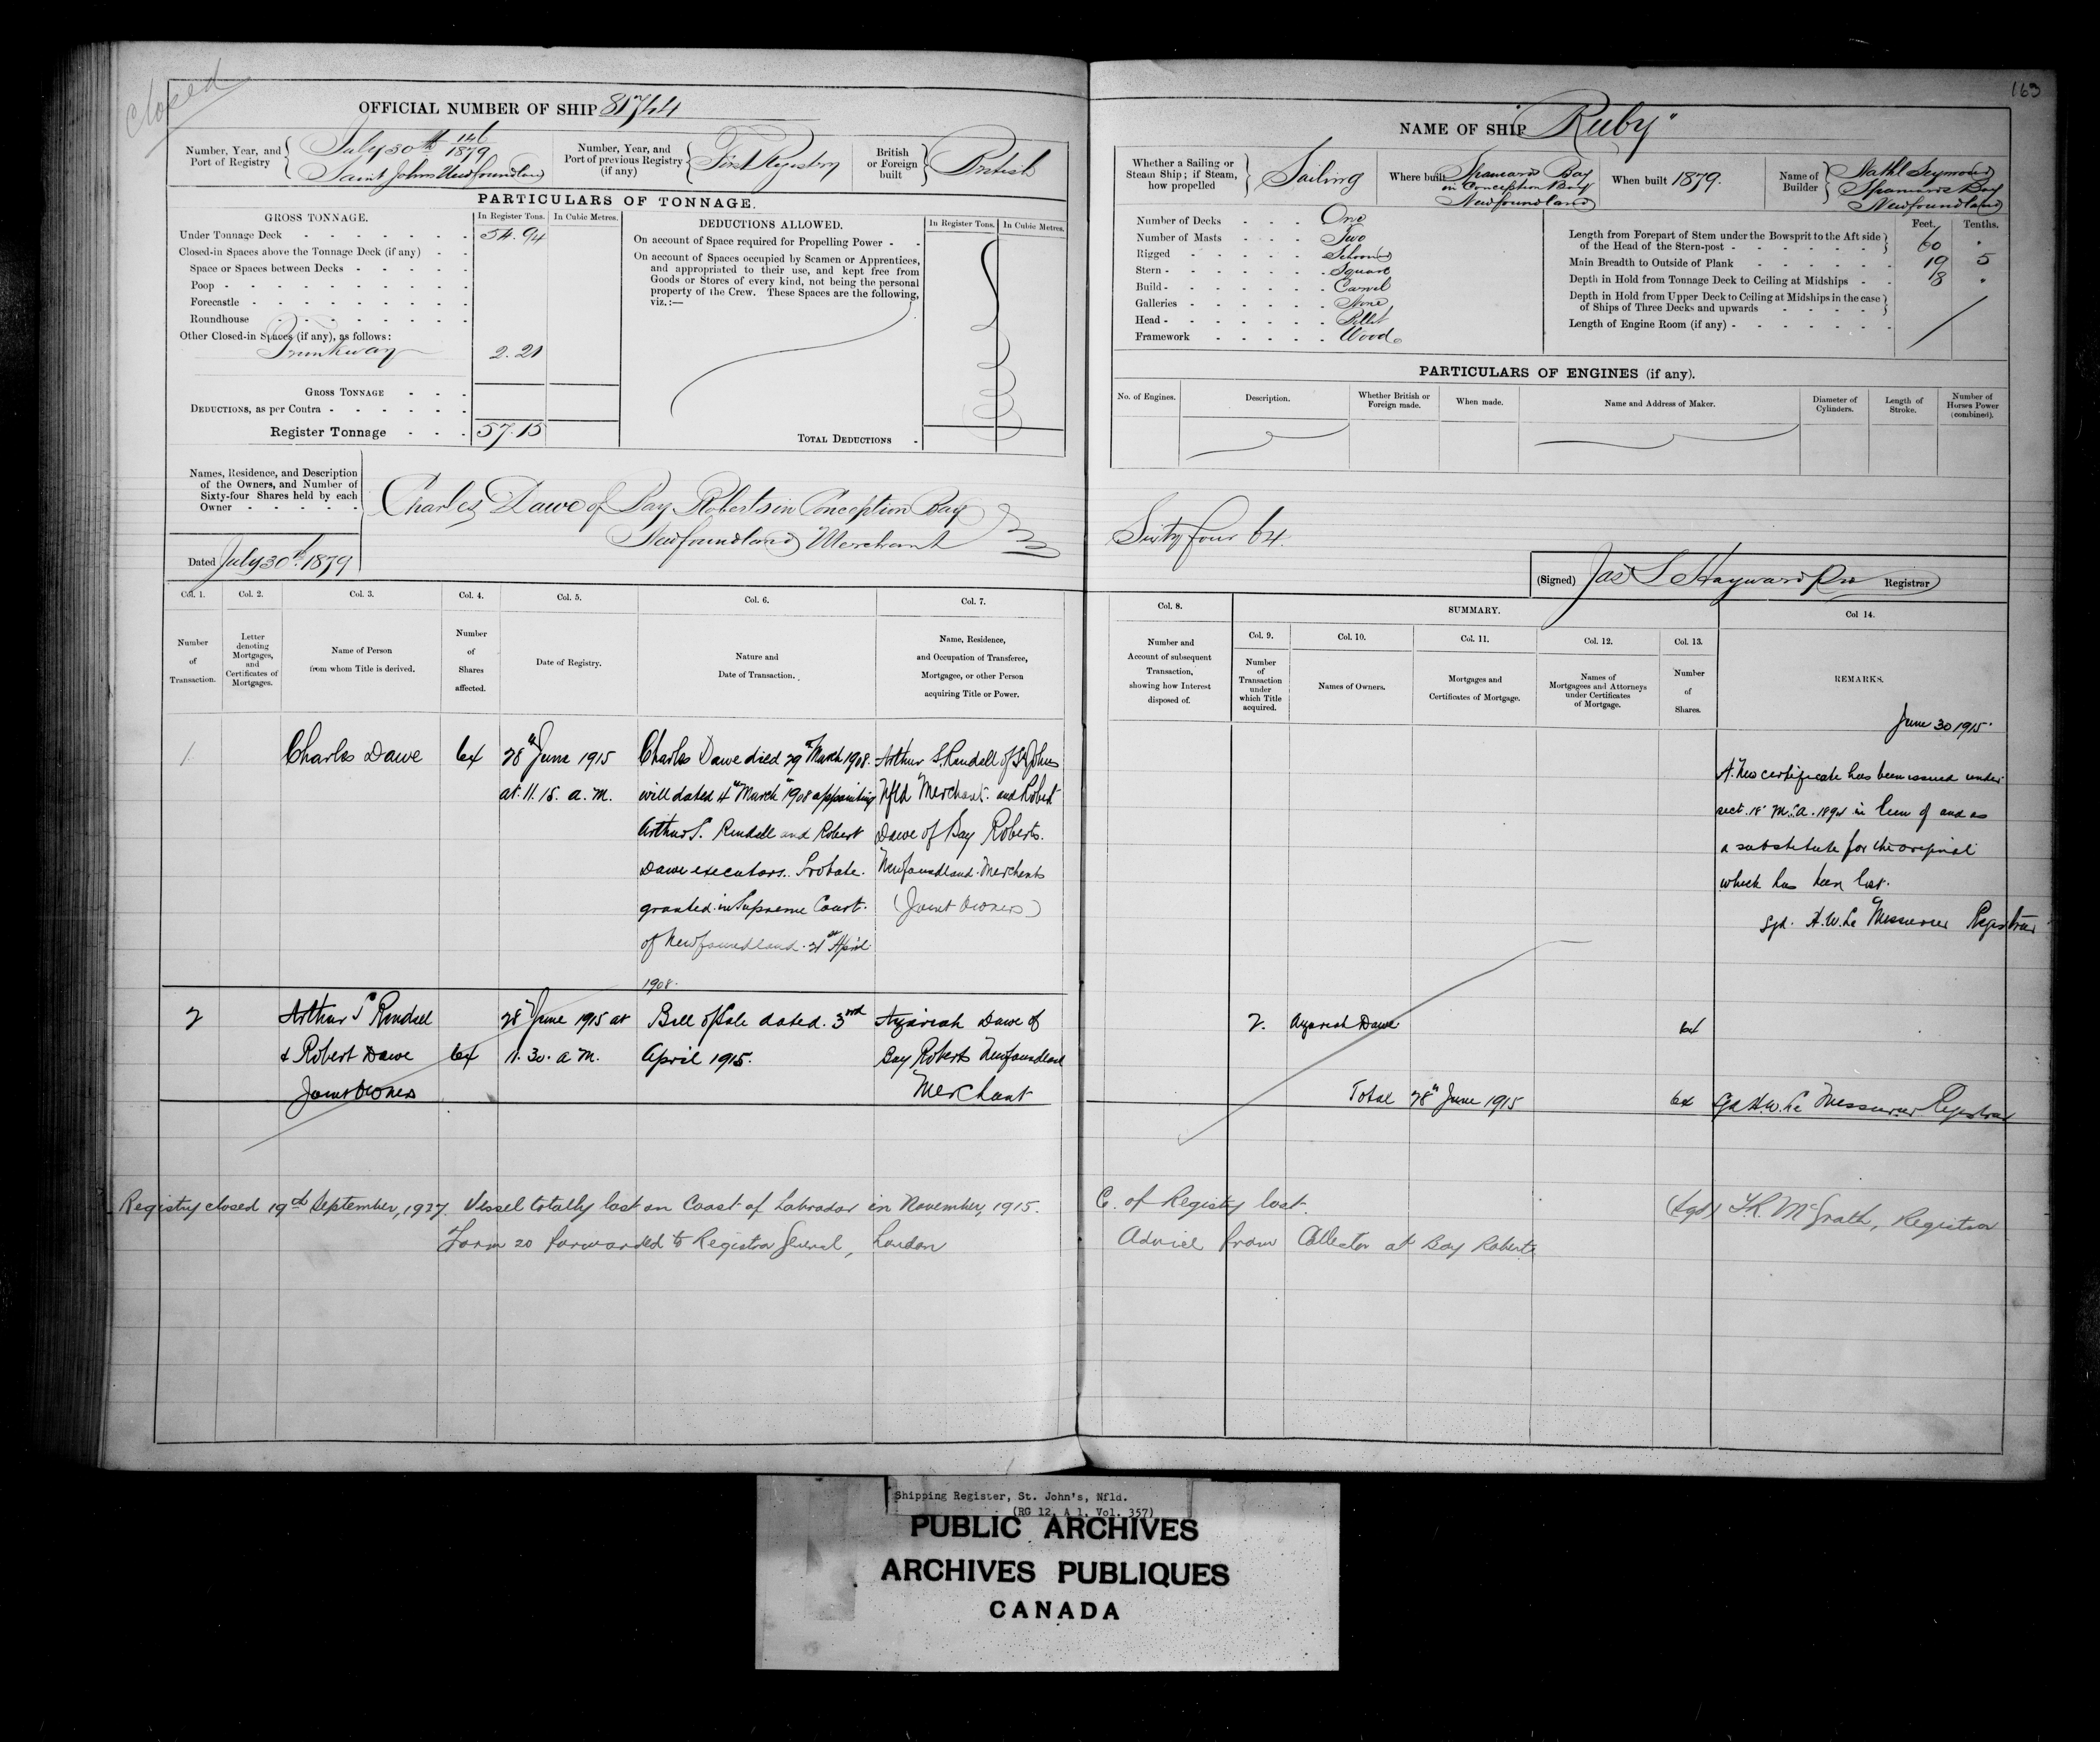 closed
163
OFFICIAL NUMBER OF SHIP 81744
NAME OF SHIP "Ruby"
Number, Year, and Port of Registry
July 30th 146/1879
Saint Johns Newfoundland
Number, Year, and Port of previous Registry (if any)
First Registry
British or Foreign built
British
Whether a Sailing or Steam Ship; if Steam, how propelled
Sailing
Where built
Spaniards Bay
in Conception Bay
Newfoundland
When built 1879.
Name of Builder
Nathl Seymour
Spaniards Bay
Newfoundland
PARTICULARS OF TONNAGE.
GROSS TONNAGE.
In Register Tons.
In Cubic Metres.
Under Tonnage Deck 54.94
Closed-in Spaces above the Tonnage Deck (if any)
Space or Spaces between Decks
Poop
Forecastle
Roundhouse
Other Closed-in Spaces (if any), as follows:
Trunkway 2.21
GROSS TONNAGE
DEDUCTIONS, as per Contra
Register Tonnage 57.15
DEDUCTIONS ALLOWED.
In Register Tons.
In Cubic Metres.
On account of Space required for Propelling Power
On account of Spaces occupied by Seamen or Apprentices,
and appropriated to their use, and kept free from
Goods or Stores of every kind, not being the personal
property of the Crew. These Spaces are the following,
viz.:—
TOTAL DEDUCTIONS
Number of Decks One
Number of Masts Two
Rigged Schooner
Stern Square
Build Carvel
Galleries None
Head Billet
Framework Wood
Feet. Tenths.
Length from Forepart of Stem under the Bowsprit to the Aft side
of the Head of the Stern-post 60 .
Main Breadth to Outside of Plank 19 5
Depth in Hold from Tonnage Deck to Ceiling at Midships 8 .
Depth in Hold from Upper Deck to Ceiling at Midships in the case
of Ships of Three Decks and upwards
Length of Engine Room (if any)
PARTICULARS OF ENGINES (if any).
No. of Engines.
Description.
Whether British or Foreign made.
When made.
Name and Address of Maker.
Diameter of Cylinders.
Length of Stroke.
Number of Horses Power (combined).
Names, Residence, and Description
of the Owners, and Number of
Sixty-four Shares held by each
Owner
Charles Dawe of Bay Roberts in Conception Bay
Newfoundland Merchant
Sixty four 64.
Dated July 30th 1879
(Signed) Jas S Hayward Registrar
Col. 1.
Number of Transaction.
Col. 2.
Letter denoting Mortgages, and Certificates of Mortgages.
Col. 3.
Name of Person from whom Title is derived.
Col. 4.
Number of Shares affected.
Col. 5.
Date of Registry.
Col. 6.
Nature and Date of Transaction.
Col. 7.
Name, Residence, and Occupation of Transferee, Mortgagee, or other Person acquiring Title or Power.
Col. 8.
Number and Account of subsequent Transaction, showing how Interest disposed of.
SUMMARY.
Col. 9.
Number of Transaction under which Title acquired.
Col. 10.
Names of Owners.
Col. 11.
Mortgages and Certificates of Mortgage.
Col. 12.
Names of Mortgagees and Attorneys under Certificates of Mortgage.
Col. 13.
Number of Shares.
Col 14.
REMARKS.
1
Charles Dawe
64
28th June 1915
at 11.15. a.m.
Charles Dawe died 29th March 1908.
will dated 4th March 1908 appointing
Arthur S. Rendell and Robert
Dawe executors. Probate.
granted in Supreme Court.
of Newfoundland. 21st April
1908.
Arthur S. Rendell of St Johns
Nfld Merchant. and Robert
Dawe of Bay Roberts.
Newfoundland. Merchants
(Joint Owners)
June 30 1915.
A. New certificate has been issued under
sect. 18 M.S.A. 1894 in lieu of and as
a substitute for the original
which has been lost.
Sgd. H.W. Le Messurier Registrar
2
Arthur S Rendell
& Robert Dawe
Joint Owners
64
28th June 1915 at
11.30. a.m.
Bill of Sale dated. 3rd
April 1915.
Azariah Dawe of
Bay Roberts Newfoundland
Merchant
2. Azariah Dawe 64
Total 28th June 1915 64 Sgd H.W. Le Messurier Registrar
Registry closed 19th September, 1927. Vessel totally lost on Coast of Labrador in November, 1915. C. of Registry lost. (Sgd) T.R. McGrath, Registrar
Form 20 forwarded to Registrar General, London Advice from Collector at Bay Roberts
Shipping Register, St. John's, Nfld.
(RG 12, A 1, Vol. 357)
PUBLIC ARCHIVES
ARCHIVES PUBLIQUES
CANADA